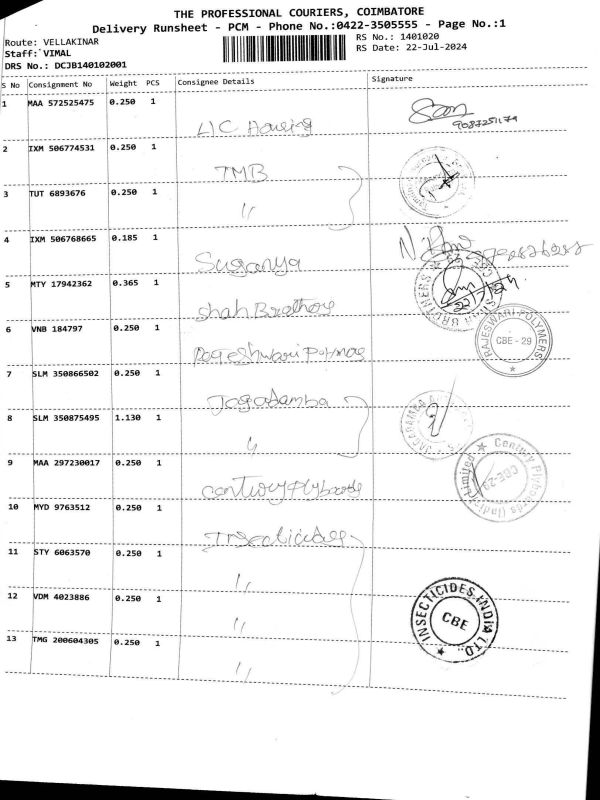 THE PROFESSIONAL COURIERS, COIMBATORE
Delivery Runsheet - PCM - Phone No.:0422-3505555 - Page No.:1
Route: VELLAKINAR
RS No.: 1401020
Staff: VIMAL
RS Date: 22-Jul-2024
DRS No.: DCJB140102001
S No Consignment No Weight PCS Consignee Details Signature
1 MAA 572525475 0.250 1 LIC Housing
2 IXM 506774531 0.250 1 TMB
3 TUT 6893676 0.250 1 "
4 IXM 506768665 0.185 1 Suganya
5 MTY 17942362 0.365 1 Shah Brothers
6 VNB 184797 0.250 1
RAJESWARI POLYMERS
CBE - 29
7 SLM 350866502 0.250 1 Jagadamba
8 SLM 350875495 1.130 1 "
9 MAA 297230017 0.250 1
Century Plyboards (India) Limited
CBE-29
10 MYD 9763512 0.250 1 Insecticides
11 STY 6063570 0.250 1 "
12 VDM 4023886 0.250 1 "
INSECTICIDES INDIA LTD.
CBE
13 TMG 200604305 0.250 1 "